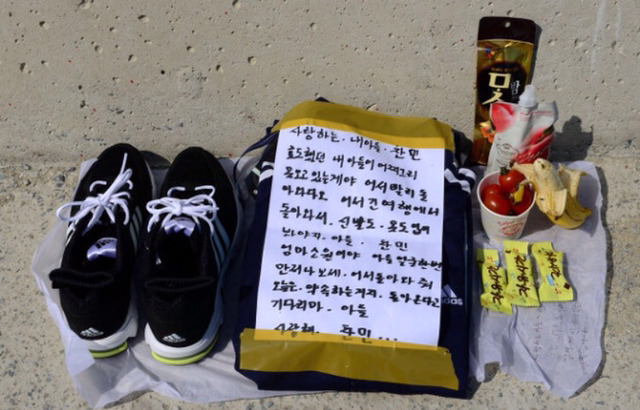 사랑하는. 내아들. 찬민
효도했던 내 아들이 어째그리
못오고 있는게야 어서 빨리 돌
아와다오 어서 긴 여행에서
돌아와서. 신발도. 옷도 입어
보아야지. 아들. 찬민
엄마소원이야 아들 얼굴한번
만져나보세. 어서돌아와줘
오늘은. 약속하는거지. 돌아온다고
기다리마. 아들
사랑해. 찬민...
adidas
adidas
adidas